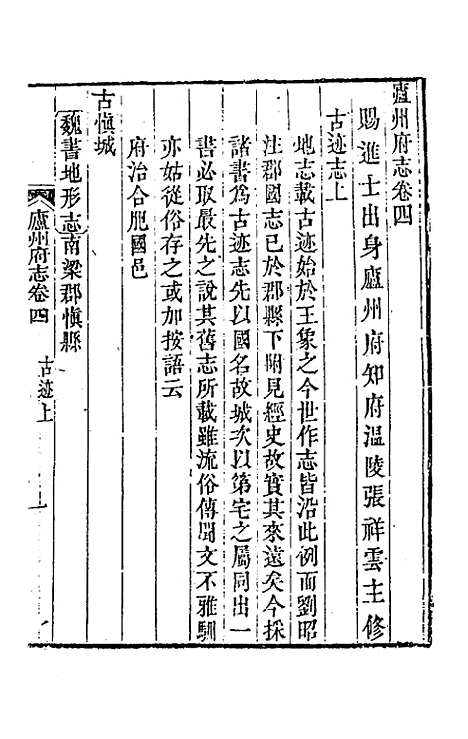 廬州府志卷四
賜進士出身廬州府知府溫陵張祥雲主修
古迹志上
地志載古迹始於王象之今世作志皆沿此例而劉昭
注郡國志已於郡縣下附見經史故實其來遠矣今採
諸書爲古迹志先以國名故城次以第宅之屬同出一
書必取最先之說其舊志所載雖流俗傳聞文不雅馴
亦姑從俗存之或加按語云
府治合肥國邑
古愼城
魏書地形志南梁郡愼縣
廬州府志卷四
古迹上
一